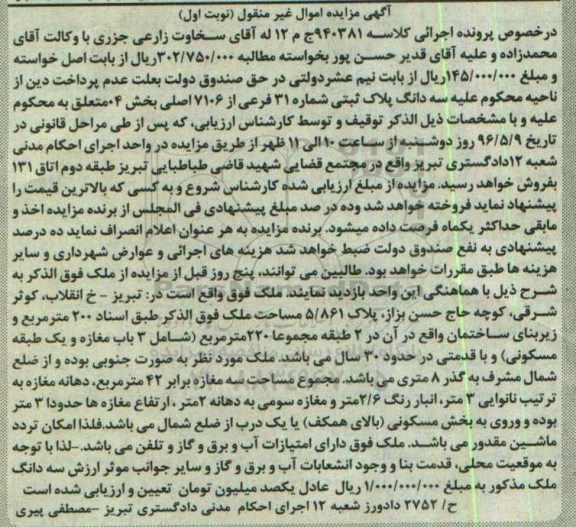 آگهی مزایده اموال غیر منقول (نوبت اول)
درخصوص پرونده اجرائی کلاسه ۹۴۰۳۸۱ج م ۱۲ له آقای سخاوت زارعی جزری با وکالت آقای
محمدزاده و علیه آقای قدیر حسن پور بخواسته مطالبه ۳۰۲/۷۵۰/۰۰۰ریال از بابت اصل خواسته
و مبلغ ۱۴۵/۰۰۰/۰۰۰ریال از بابت نیم عشردولتی در حق صندوق دولت بعلت عدم پرداخت دین از
ناحیه محکوم علیه سه دانگ پلاک ثبتی شماره ۳۱ فرعی از ۷۱۰۶ اصلی بخش ۰۴متعلق به محکوم
علیه و با مشخصات ذیل الذکر توقیف و توسط کارشناس ارزیابی، که پس از طی مراحل قانونی در
تاریخ ۹۶/۵/۹ روز دوشنبه از ساعت ۱۰ الی ۱۱ ظهر از طریق مزایده در واحد اجرای احکام مدنی
شعبه ۱۲دادگستری تبریز واقع در مجتمع قضایی شهید قاضی طباطبایی تبریز طبقه دوم اتاق ۱۳۱
بفروش خواهد رسید. مزایده از مبلغ ارزیابی شده کارشناس شروع و به کسی که بالاترین قیمت را
پیشنهاد نماید فروخته خواهد شد وده در صد مبلغ پیشنهادی فی المجلس از برنده مزایده اخذ و
مابقی حداکثر یکماه فرصت داده میشود. برنده مزایده به هر عنوان اعلام انصراف نماید ده درصد
پیشنهادی به نفع صندوق دولت ضبط خواهد شد هزینه های اجرائی و عوارض شهرداری و سایر
هزینه ها طبق مقررات خواهد بود. طالبین می توانند، پنج روز قبل از مزایده از ملک فوق الذکر به
شرح ذیل با هماهنگی این واحد بازدید نمایند. ملک فوق واقع است در: تبریز - خ انقلاب، کوثر
شرقی، کوچه حاج حسن بزاز، پلاک ۵/۸۶۱ مساحت ملک فوق الذکر طبق اسناد ۲۰۰ مترمربع و
زیربنای ساختمان واقع در آن در ۲ طبقه مجموعا ۲۲۰مترمربع (شامل ۳ باب مغازه و یک طبقه
مسکونی) و با قدمتی در حدود ۳۰ سال می باشد. ملک مورد نظر به صورت جنوبی بوده و از ضلع
شمال مشرف به گذر ۸ متری می باشد. مجموع مساحت سه مغازه برابر ۴۲ مترمربع، دهانه مغازه به
ترتیب نانوایی ۳ متر، انبار رنگ ۲/۶متر و مغازه سومی به دهانه ۲متر ، ارتفاع مغازه ها حدودا ۳ متر
بوده و وروی به بخش مسکونی (بالای همکف) با یک درب از ضلع شمال می باشد.فلذا امکان تردد
ماشین مقدور می باشد. ملک فوق دارای امتیازات آب و برق و گاز و تلفن می باشد.-لذا با توجه
به موقعیت محلی، قدمت بنا و وجود انشعابات آب و برق و گاز و سایر جوانب موثر ارزش سه دانگ
ملک مذکور به مبلغ ۱/۰۰۰/۰۰۰/۰۰۰ ریال عادل یکصد میلیون تومان تعیین و ارزیابی شده است
ح/ ۲۷۵۲ دادورز شعبه ۱۲ اجرای احکام مدنی دادگستری تبریز -مصطفی پیری